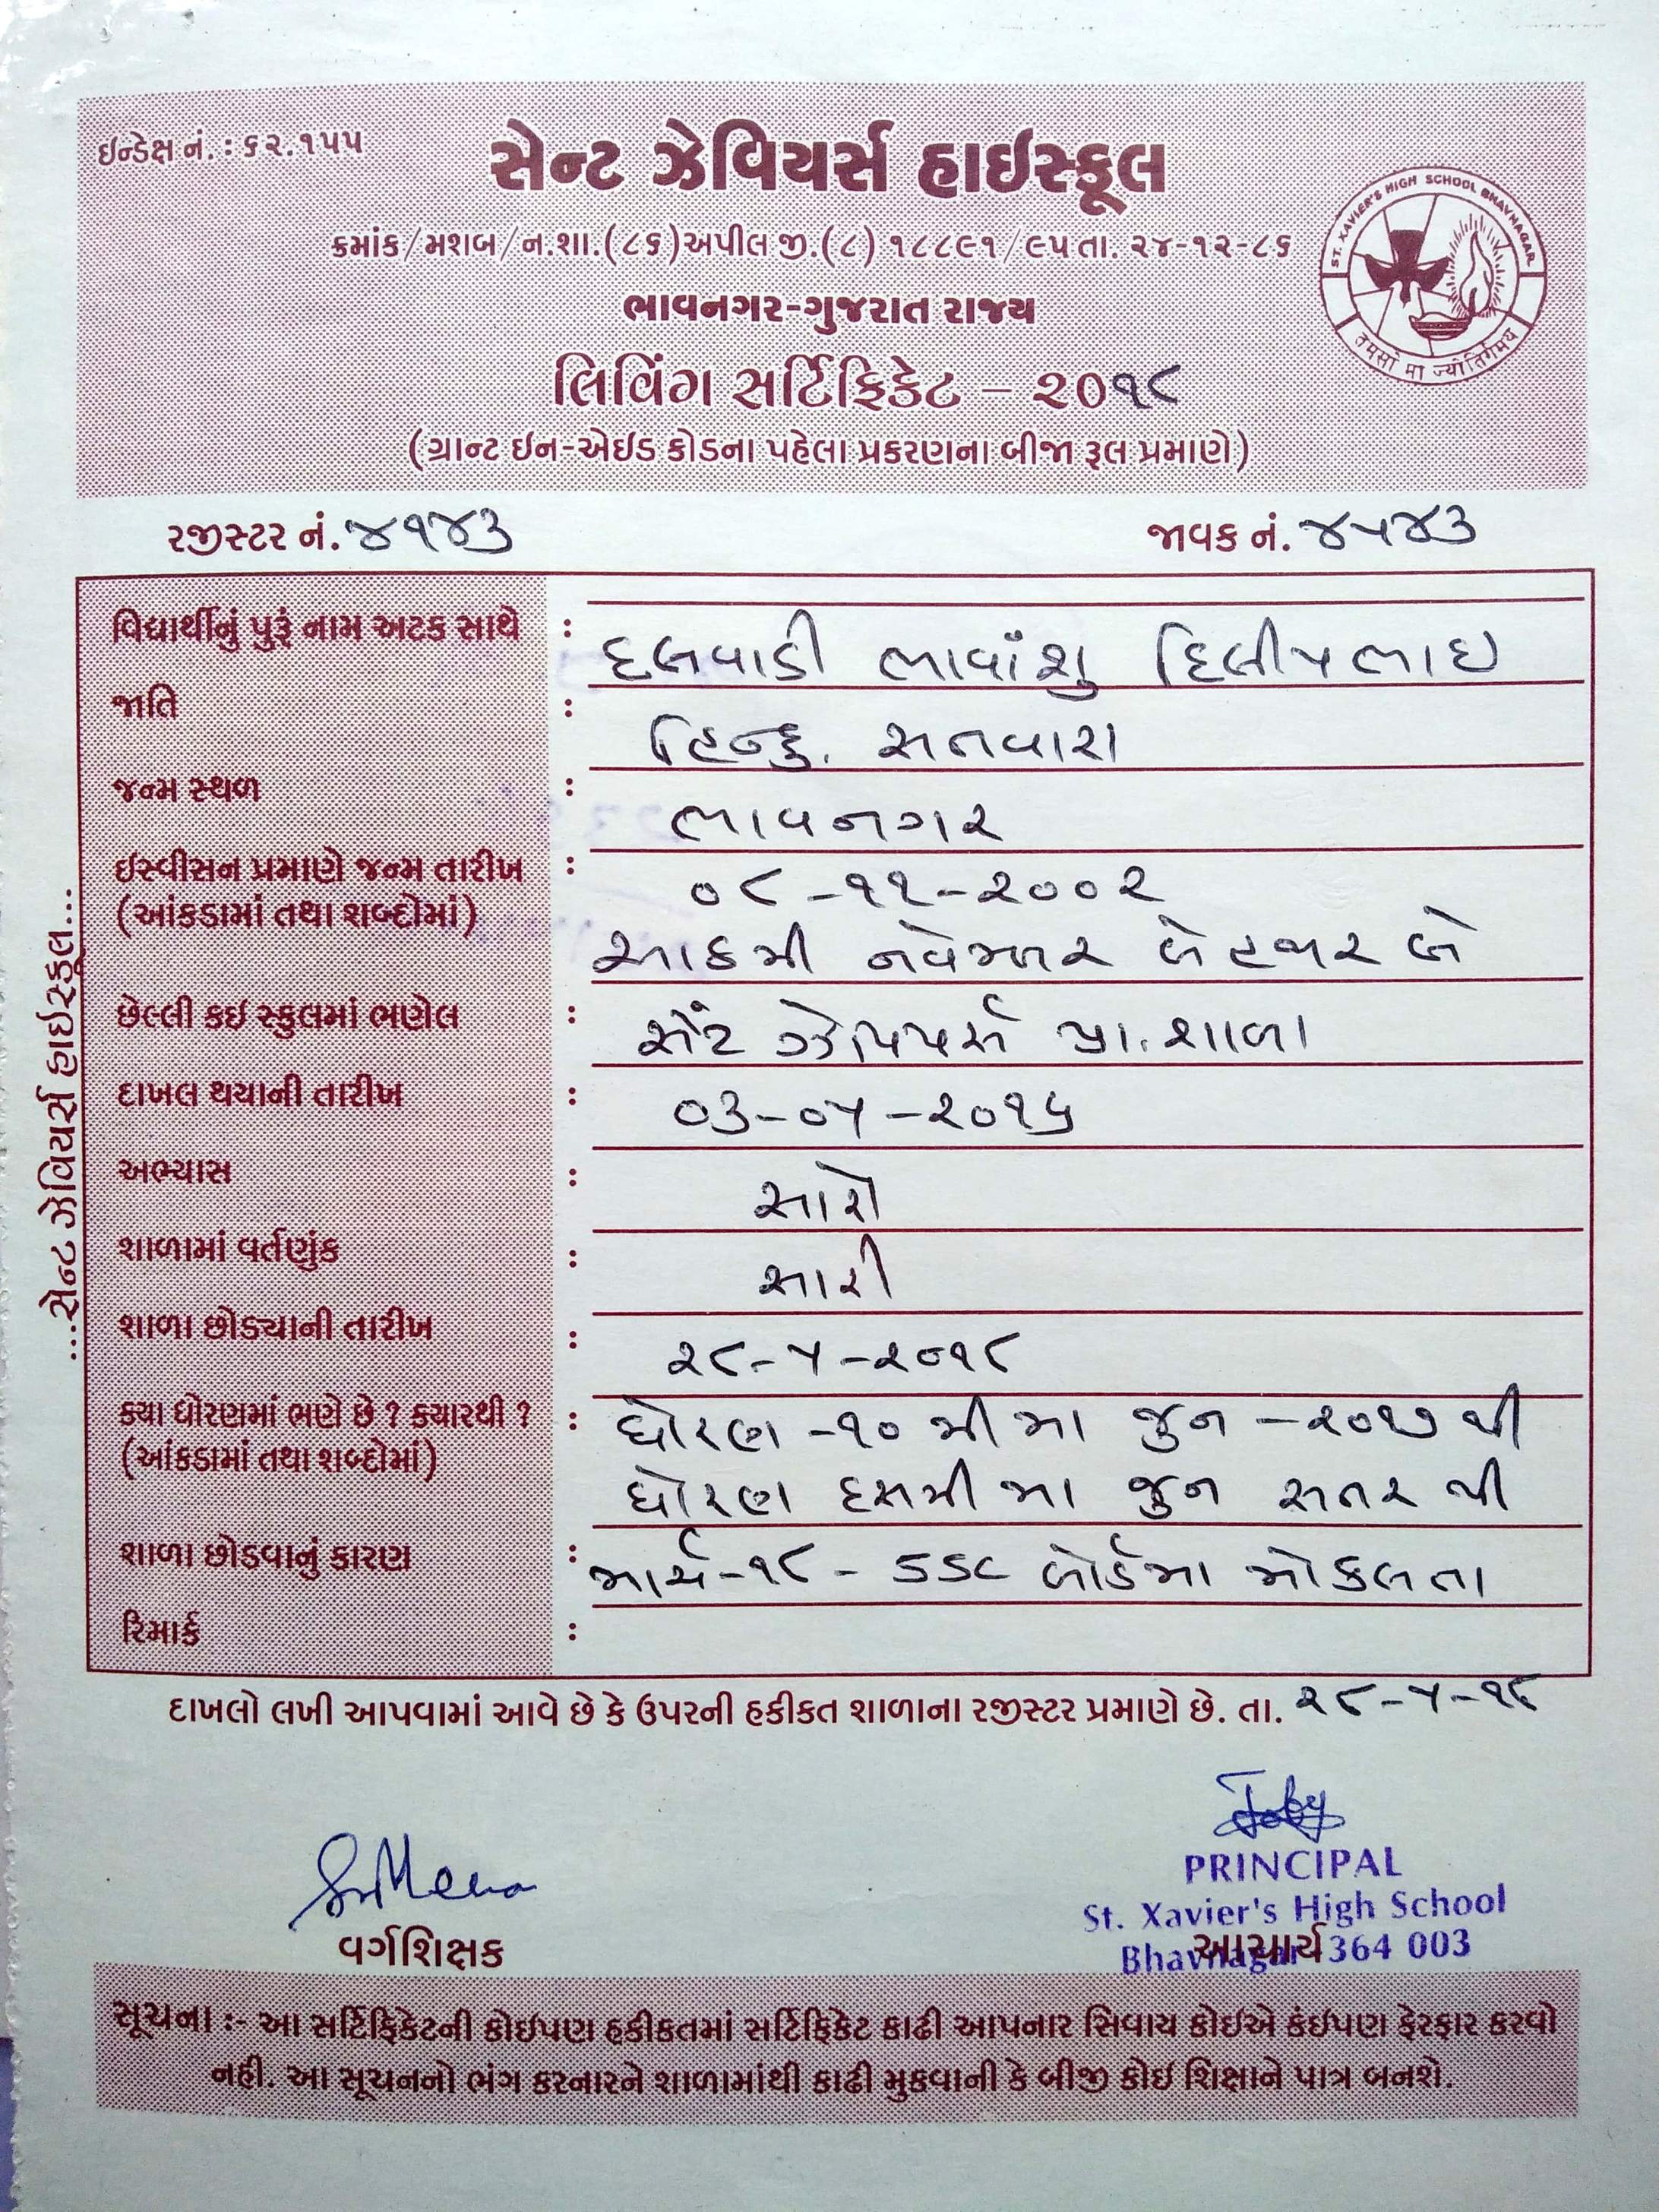 ઈન્ડેક્ષ નં. : ૬૨.૧૫૫
સેન્ટ ઝેવિયર્સ હાઈસ્કૂલ
ક્રમાંક/મશબ/ન.શા.(૮૬)અપીલ જી.(૮) ૧૮૮૯૧/૯૫ તા. ૨૪-૧૨-૮૬
ભાવનગર-ગુજરાત રાજ્ય
ST. XAVIER'S HIGH SCHOOL BHAVNAGAR
तमसो मा ज्योतिर्गमय
લિવિંગ સર્ટિફિકેટ - ૨૦૧૮
(ગ્રાન્ટ ઈન-એઈડ કોડના પહેલા પ્રકરણના બીજા રૂલ પ્રમાણે)
રજીસ્ટર નં. ૪૧૪૩ જાવક નં. ૪૫૪૩
વિદ્યાર્થીનું પુરૂં નામ અટક સાથે : દલવાડી ભાવાંશુ દિલીપભાઇ
જાતિ : હિન્દુ. સતવારા
જન્મ સ્થળ : ભાવનગર
ઈસ્વીસન પ્રમાણે જન્મ તારીખ : ૦૮-૧૧-૨૦૦૨
(આંકડામાં તથા શબ્દોમાં) આઠમી નવેમ્બર બે હજાર બે
છેલ્લી કઈ સ્કુલમાં ભણેલ : સેંટ ઝેવિયર્સ પ્રા. શાળા
દાખલ થયાની તારીખ : ૦૩-૦૫-૨૦૧૬
અભ્યાસ : સારો
શાળામાં વર્તણુંક : સારી
શાળા છોડ્યાની તારીખ : ૨૮-૫-૨૦૧૮
ક્યા ધોરણમાં ભણે છે ? ક્યારથી ? : ધોરણ -૧૦ મી મા જુન -૨૦૧૭ થી
(આંકડામાં તથા શબ્દોમાં) ધોરણ દસમી મા જુન સતર થી
શાળા છોડવાનું કારણ : માર્ચ-૧૮ - SSC બોર્ડમા મોકલતા
રિમાર્ક :
...સેન્ટ ઝેવિયર્સ હાઈસ્કૂલ...
દાખલો લખી આપવામાં આવે છે કે ઉપરની હકીકત શાળાના રજીસ્ટર પ્રમાણે છે. તા. ૨૮-૫-૧૮
PRINCIPAL
St. Xavier's High School
Bhavnagar 364 003
વર્ગશિક્ષક આચાર્ય
સૂચના :- આ સર્ટિફિકેટની કોઈપણ હકીકતમાં સર્ટિફિકેટ કાઢી આપનાર સિવાય કોઈએ કંઈપણ ફેરફાર કરવો
નહી. આ સૂચનનો ભંગ કરનારને શાળામાંથી કાઢી મુકવાની કે બીજી કોઈ શિક્ષાને પાત્ર બનશે.